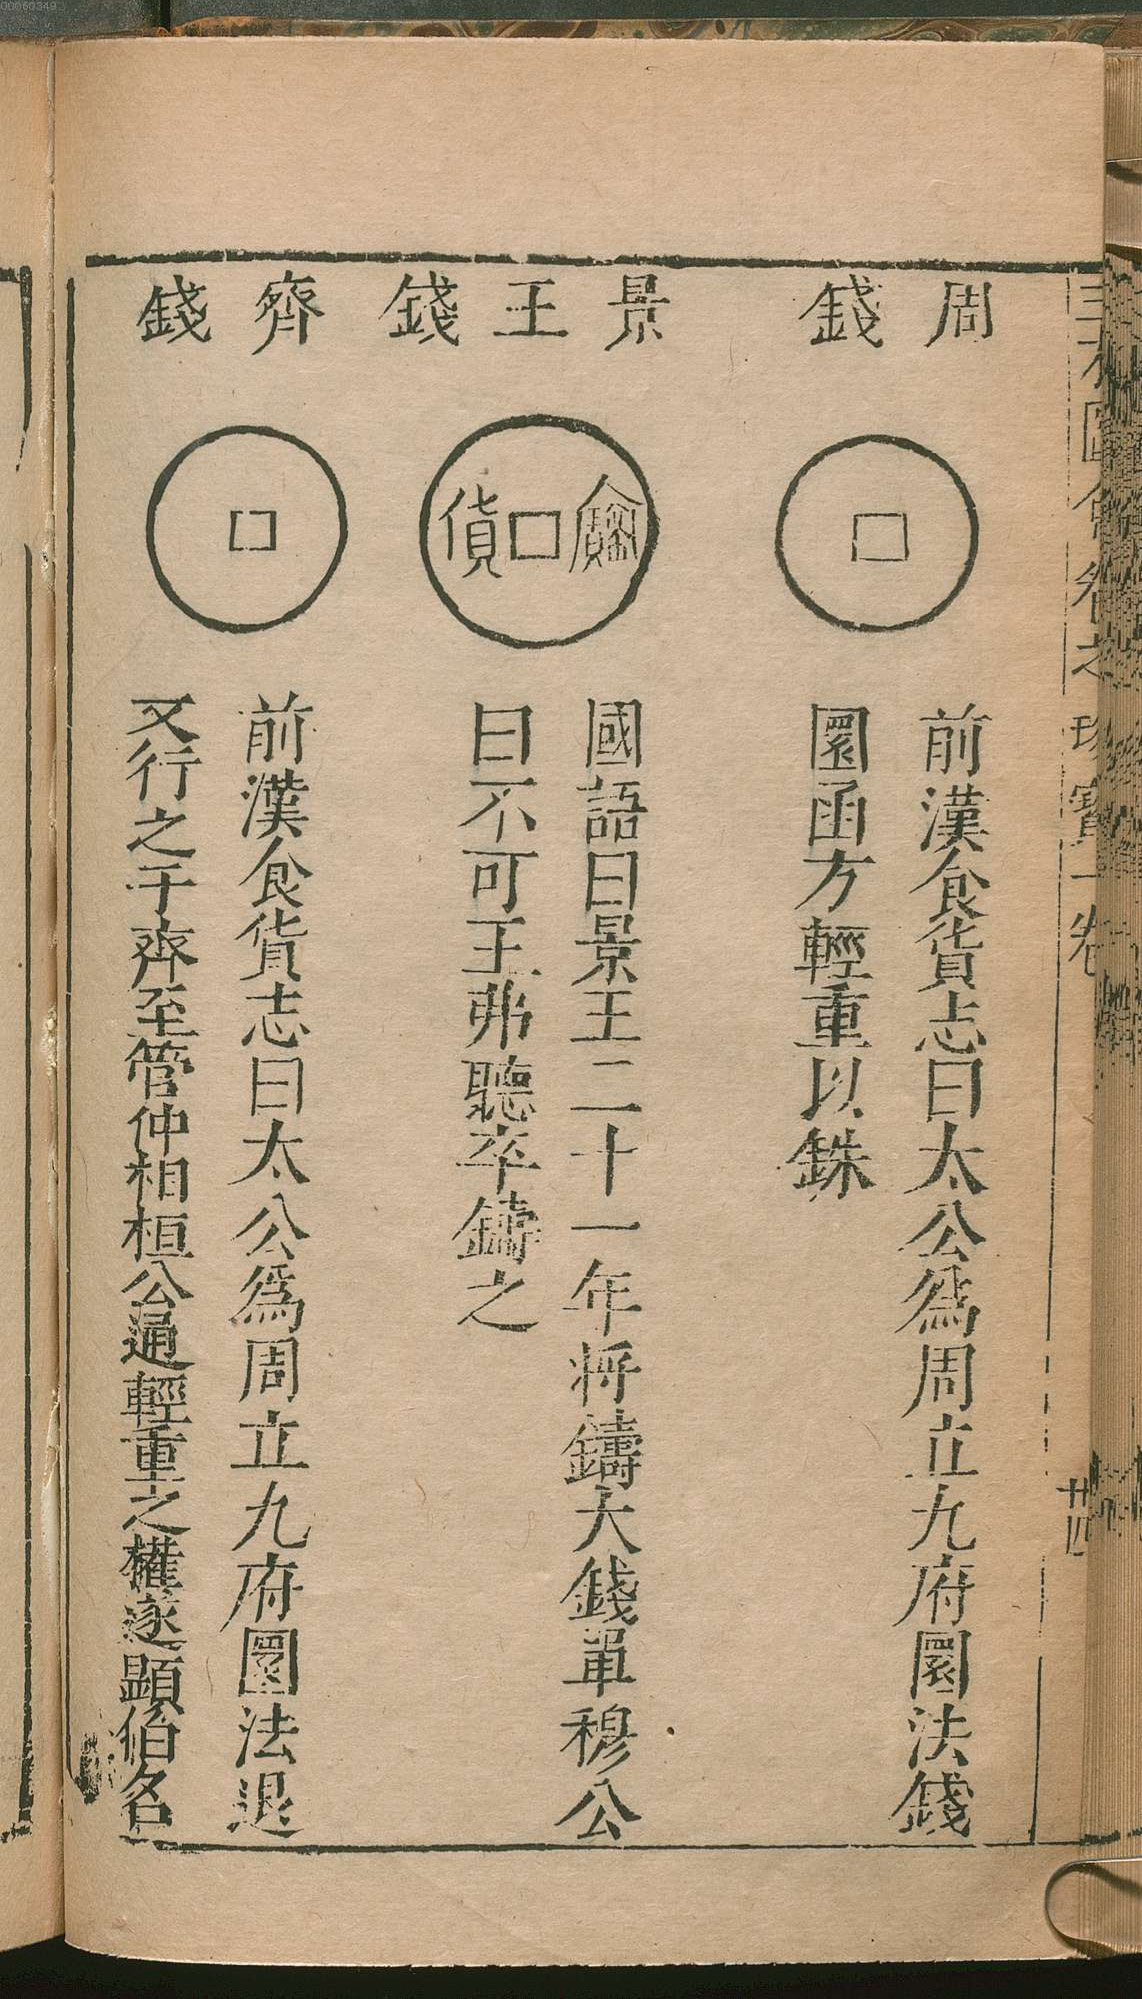 00060349
三才圖會 卷之 珍寶一卷
廿四
周錢
前漢食貨志曰太公爲周立九府圜法錢
圜函方輕重以銖
景王錢
寶貨
國語曰景王二十一年將鑄大錢單穆公
曰不可王弗聽卒鑄之
齊錢
前漢食貨志曰太公爲周立九府圜法退
又行之于齊至管仲相桓公通輕重之權遂顯伯名